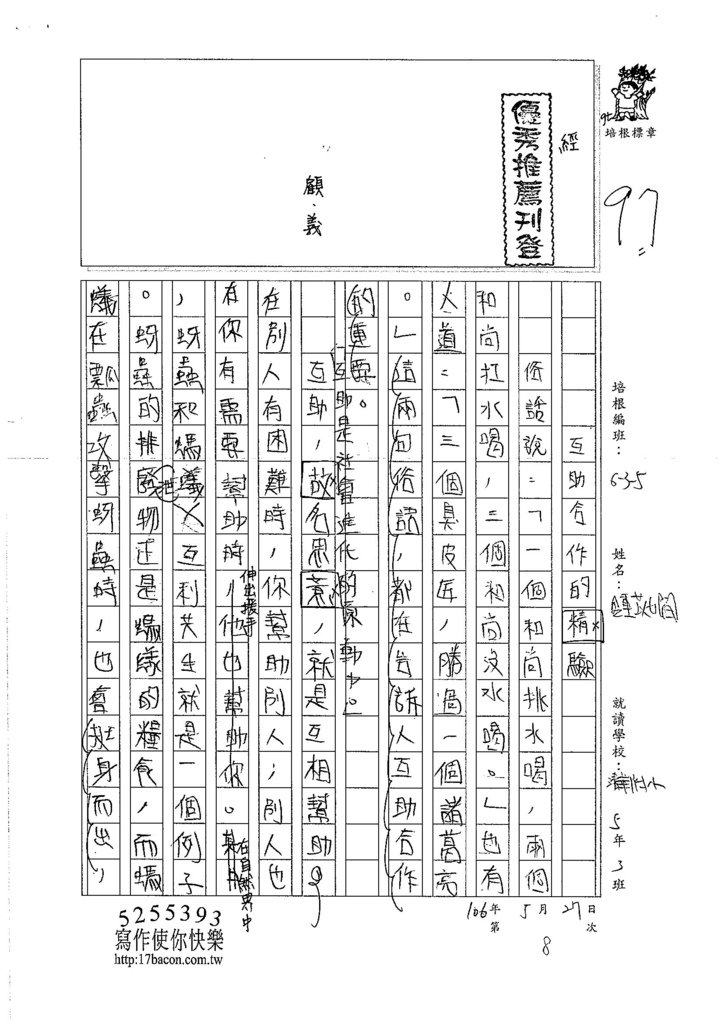 培根標章
97
經
優秀推薦刊登
顧、義
培根編班：6-3-5
姓名：
就讀學校：
5年3班
106年5月27日
第8次
互助合作的精驗
俗話說：「一個和尚挑水喝，兩個
和尚扛水喝，三個和尚沒水喝。」也有
人道：「三個臭皮匠，勝過一個諸葛亮
。」這兩句俗諺，都在告訴人互助合作
的重要。
互助是社會進化的原動力。
互助，故名思義，就是互相幫助。
在別人有困難時，你幫助別人；別人也
在你有需要幫助時，他也幫助你。
伸出援手
在自然界中
，蚜蟲和螞蟻互利共生就是一個例子
。蚜蟲的排泄物正是螞蟻的糧食，而螞
蟻在瓢蟲攻擊蚜蟲時，也會挺身而出，
5255393
寫作使你快樂
http:17bacon.com.tw